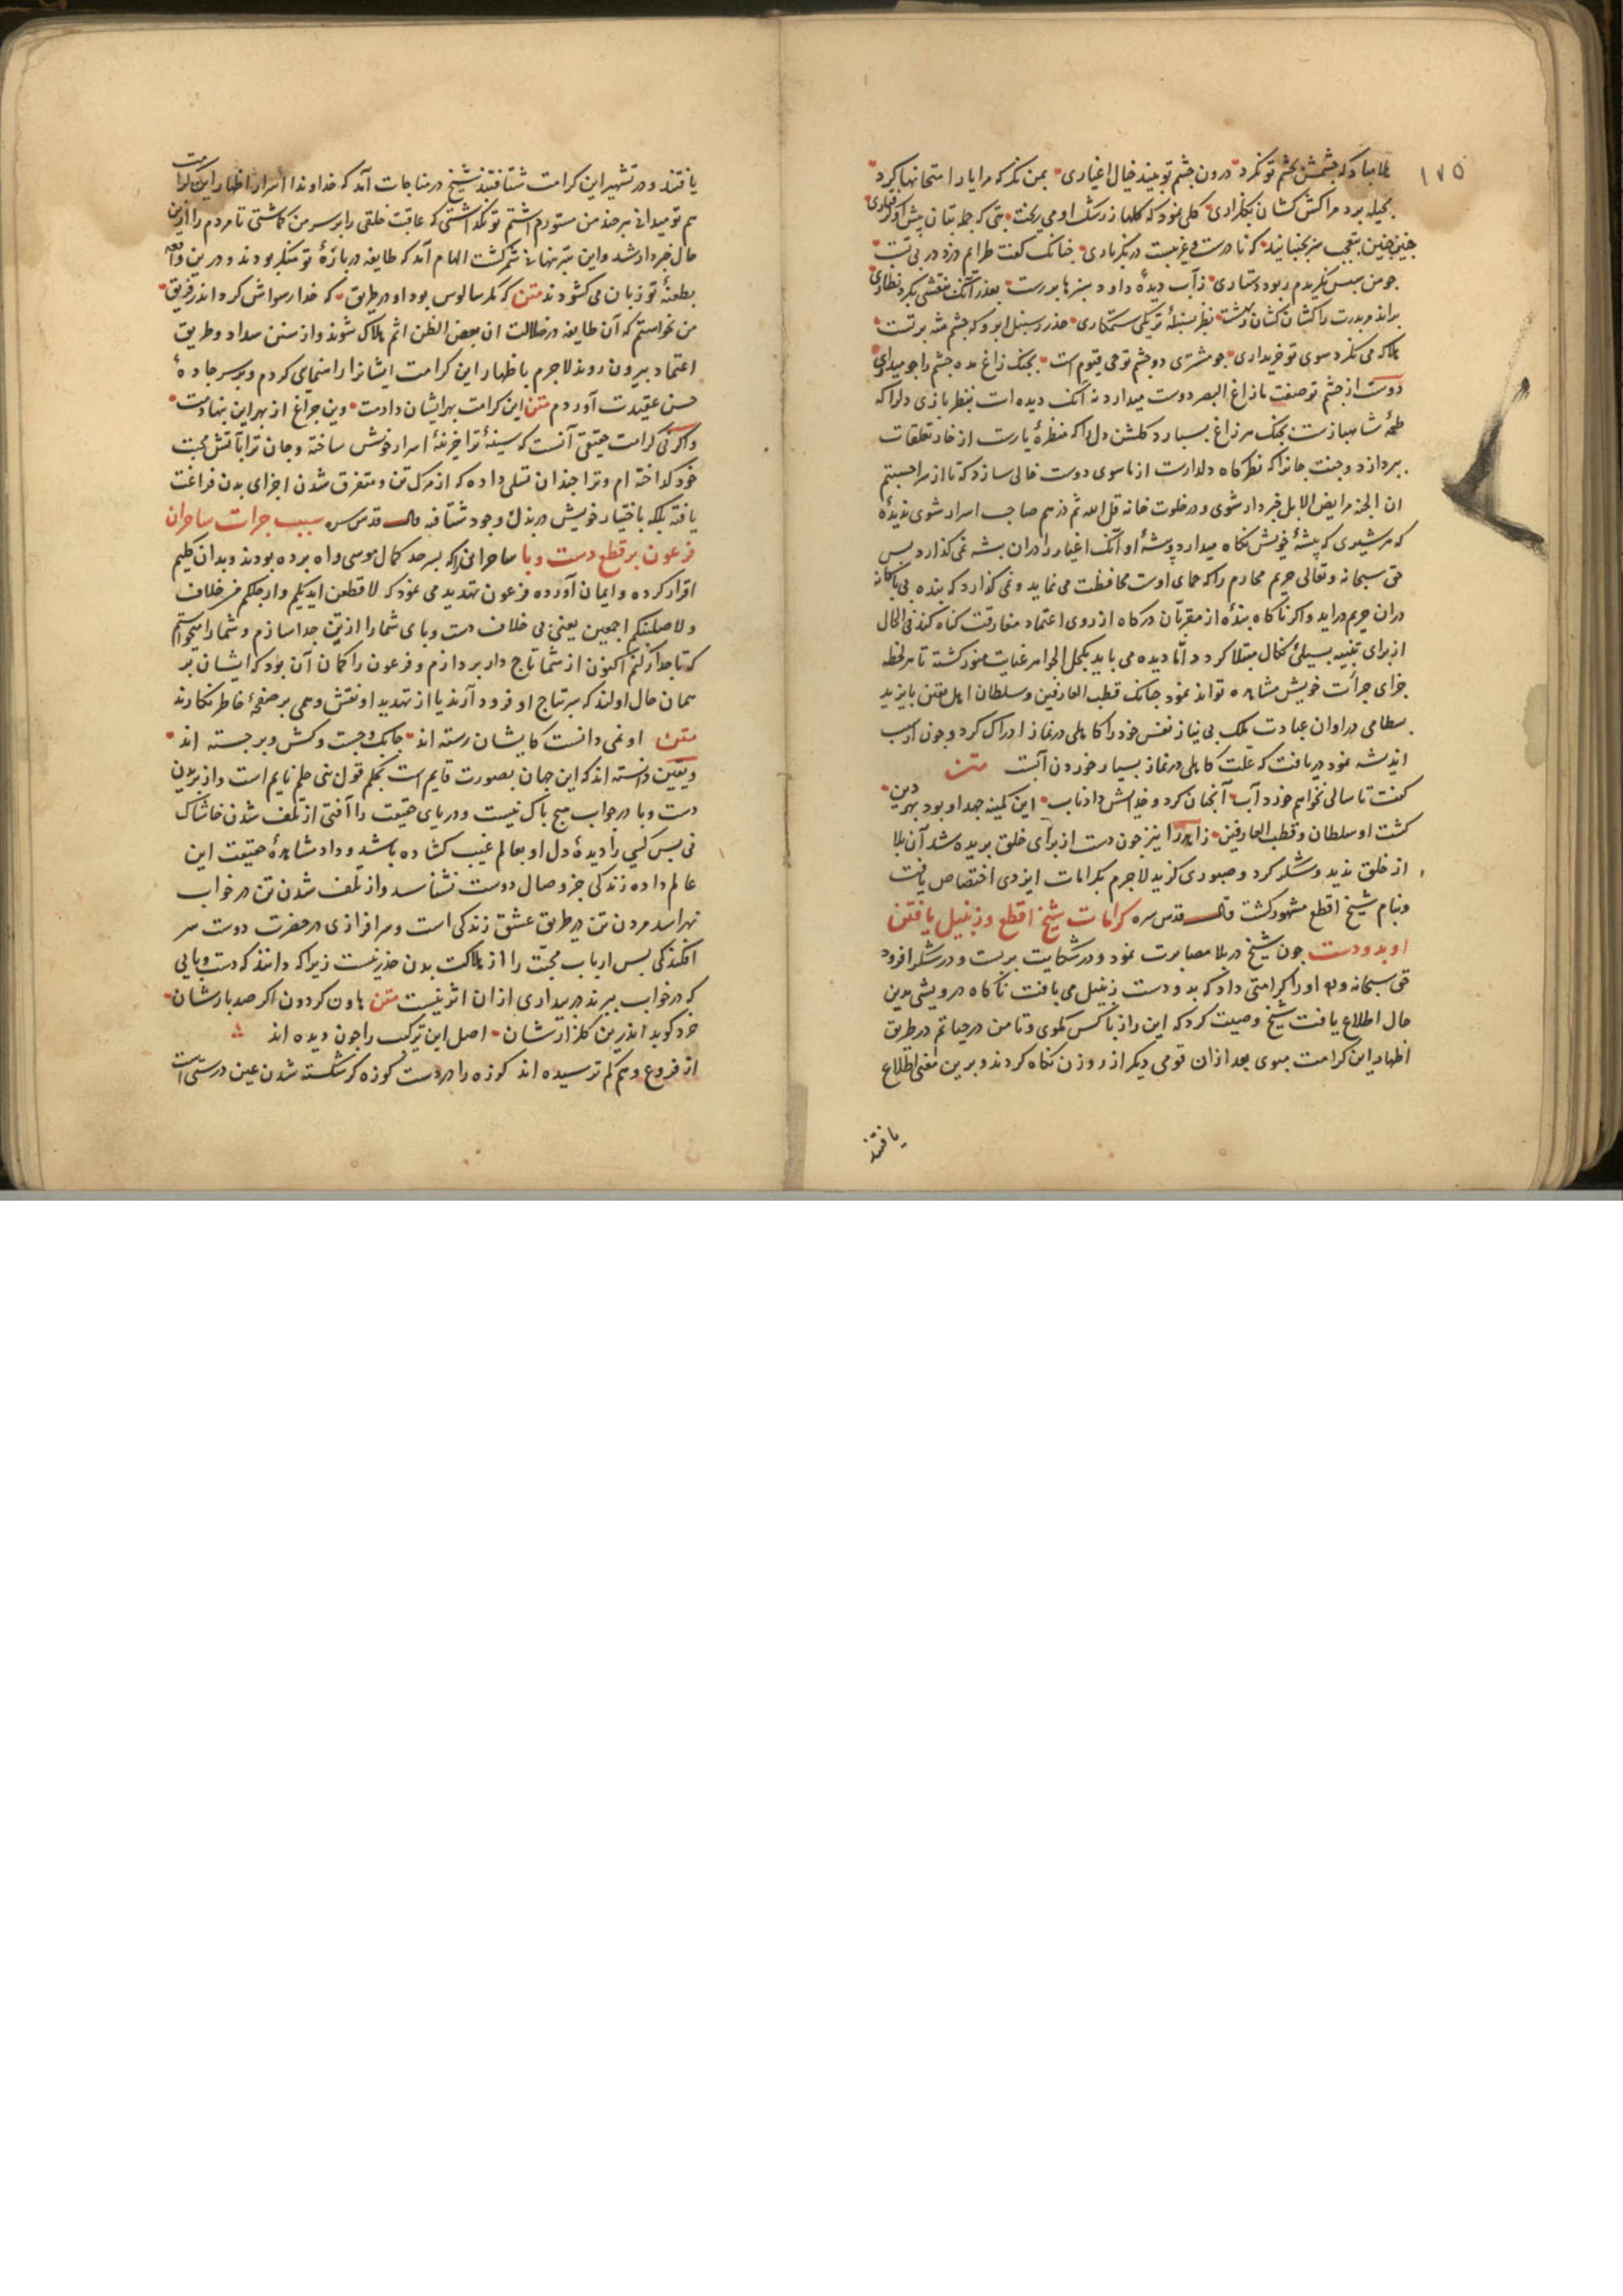 ١٧٥
بلا مبادکه چشمش بچشم تو نکرد درون چشم تو بیند خیال اغیاری بمن نکر که مرا یار امتحانها کرد
بحیله برد مرا کش کشان بکلزاری کلی نمود که کلها ز رشک او می ریخت بتی که جمله بتان پیش او
چنین چنین بتعجب سر بجنبانید که نادرست و غریبست در نکر باری چنانک کفت طرارم دزد در پی تست
چو من سپس نکریدم ربود دستاری ز آب دیده داود سبزها بر رست بعذر آنک نقشی بکرد نظاری
براند مر پدرت را کشان کشان ز بهشت نظر بسنبله تر یکی ستمکاری حذر ز سنبل ابرو که چشم شه بر تست
هلا که می نکرد سوی تو خریداری چو مشتری دو چشم تو حی قیوم است بچنک زاغ مده چشم را چو مرداری
دوست از چشم تو صفت مازاغ البصر دوست میدارد نه آنک دیده ات بنظر بازی دلرا که
طعمه شاهبازست بچنک هر زاغ بسپارد کلشن دل را که منظره یارست از خار تعلقات
بپردازد و جنت جانرا که نظرکاه دلدارست از ماسوی دوست خالی سازد که تا از سر احسبتم
ان الجنه مرابض الابل خبردار شوی و در خلوت خانه قل الله ثم ذرهم صاحب اسرار شوی ندیده
که هر شیری که پیشه خویش نکاه میدارد پیشه او آنک اغیار را دران بیشه نمی کذارد پس
حق سبحانه و تعالی حریم محارم را که حمای اوست محافظت می نماید و نمی کذارد که بنده بی باکانه
دران حریم درآید و اکر ناکاه بنده از مقربان درکاه از روی اعتماد مفارقت کناه کند فی الحال
از برای تنبیه بسیلی نکال مبتلا کردد امّا دیده می باید بکحل الجواهر عنایت منور کشته تا هر لحظه
جزای جرأت خویش مشاهده تواند نمود چنانک قطب العارفین و سلطان اهل یقین بایزید
بسطامی در اوان عبادت ملک بی نیاز نفس خود را کاهلی در نماز ادراک کرد و چون از سبب
اندیشه نمود دریافت که علت کاهلی در نماز بسیار خوردن آبست متن
کفت تا سالی نخواهم خورد آب آنچنان کرد و خدایش داد تاب این کمینه جهد او بود بهر دین
کشت او سلطان و قطب العارفین زاهد را نیز چون دست از برای خلق بریده شد آن بلا
از خلق ندید و شکر کرد و صبوری کزید لاجرم بکرامات ایزدی اختصاص یافت
و بنام شیخ اقطع مشهور کشت قال قدس سره کرامات شیخ اقطع و زنبیل بافتن
او بدو دست چون شیخ در بلا مصابرت نمود و در شکایت بربست و در شکر افزود
حق سبحانه و تع او را کرامتی داد که بدو دست زنبیل می بافت ناکاه درویشی بدین
حال اطلاع یافت شیخ وصیت کرد که این راز با کس نکوی و تا من در حیاتم در طریق
اظهار این کرامت مپوی بعد ازان قومی دیکر از روزن نکاه کردند و برین معنی اطلاع
یافتند
یافتند و در تشهیر این کرامت شتافتند شیخ در مناجات آمد که خداوندا اسرار اظهار این کرامت
هم تو میدانی هر چند من مستور داشتم تو نکذاشتی که عاقبت خلقی را بر سر من کماشتی تا مردم را ازین
حال خبردار شد و این سر نهانی مشتهر کشت الهام آمد که طایفه درباره تو منکر بودند و درین واقعه
بطعنه تو زبان می کشودند متن که مکر سالوس بود او در طریق که خدا رسواش کرد اندر فریق
من نخواستم که آن طایفه در ضلالت ان بعض الظن اثم هلاک شوند و از سنن سداد و طریق
اعتماد بیرون روند لاجرم باظهار این کرامت ایشانرا راهنمای کردم و بر سر جاده
حسن عقیدت آوردم متن این کرامت بهر ایشان دادمت وین چراغ از بهر این بنهادمت
واکر نی کرامت حقیقی آنست که سینه ترا خزینه اسرار خویش ساخته و جان ترا بآتش محبت
خود کداخته ام و ترا چندان تسلی داده که از مرک تن و متفرق شدن اجزای بدن فراغت
یافته بلکه باختیار خویش در بذل وجود شتافته قال قدس سره سبب جرات ساحران
فرعون بر قطع دست و پا ساحرانی را که بسرحد کمال موسی راه برده بودند و بدان کلیم
اقرار کرده و ایمان آورده فرعون تهدید می نمود که لاقطعن ایدیکم و ارجلکم من خلاف
و لاصلبنکم اجمعین یعنی بی خلاف دست و پای شما را از تن جدا سازم و شما را میخواستم
که تاجدار کنم اکنون از شما تاج دار بردازم و فرعون را کمان آن بود که ایشان بر
همان حال اولند که سر بتاج او فرود آرند یا از تهدید او نقش وهمی بر صفحه خاطر نکارند
متن او نمی دانست کایشان رسته اند چابک و چست و کش و برجسته اند
و یقین دانسته اند که این جهان بصورت قایم است بحکم قول نبی حلم نایم است و از بریدن
دست و پا در خواب هیچ باک نیست و دریای حقیقت را آفتی از تلف شدن خاشاک
نی پس کسی را دیده دل او بعالم غیب کشاده باشد و داد مشاهده حقیقت این
عالم داده زندکی جز وصال دوست نشناسد و از تلف شدن تن در خواب
نهراسد مردن تن در طریق عشق زندکی است و سرافرازی در حضرت دوست سر
افکندکی پس ارباب محبت را از هلاکت بدن حذر نیست زیرا که دانند که دست و پایی
که در خواب ببرند در بیداری ازان اثر نیست متن هاون کردون اکر صد بارشان
خرد کوبد اندرین کلزارشان اصل این ترکیب را چون دیده اند
از فروع وهم کم ترسیده اند کوزه را در دست کوزه کر شکسته شدن عین درستی است